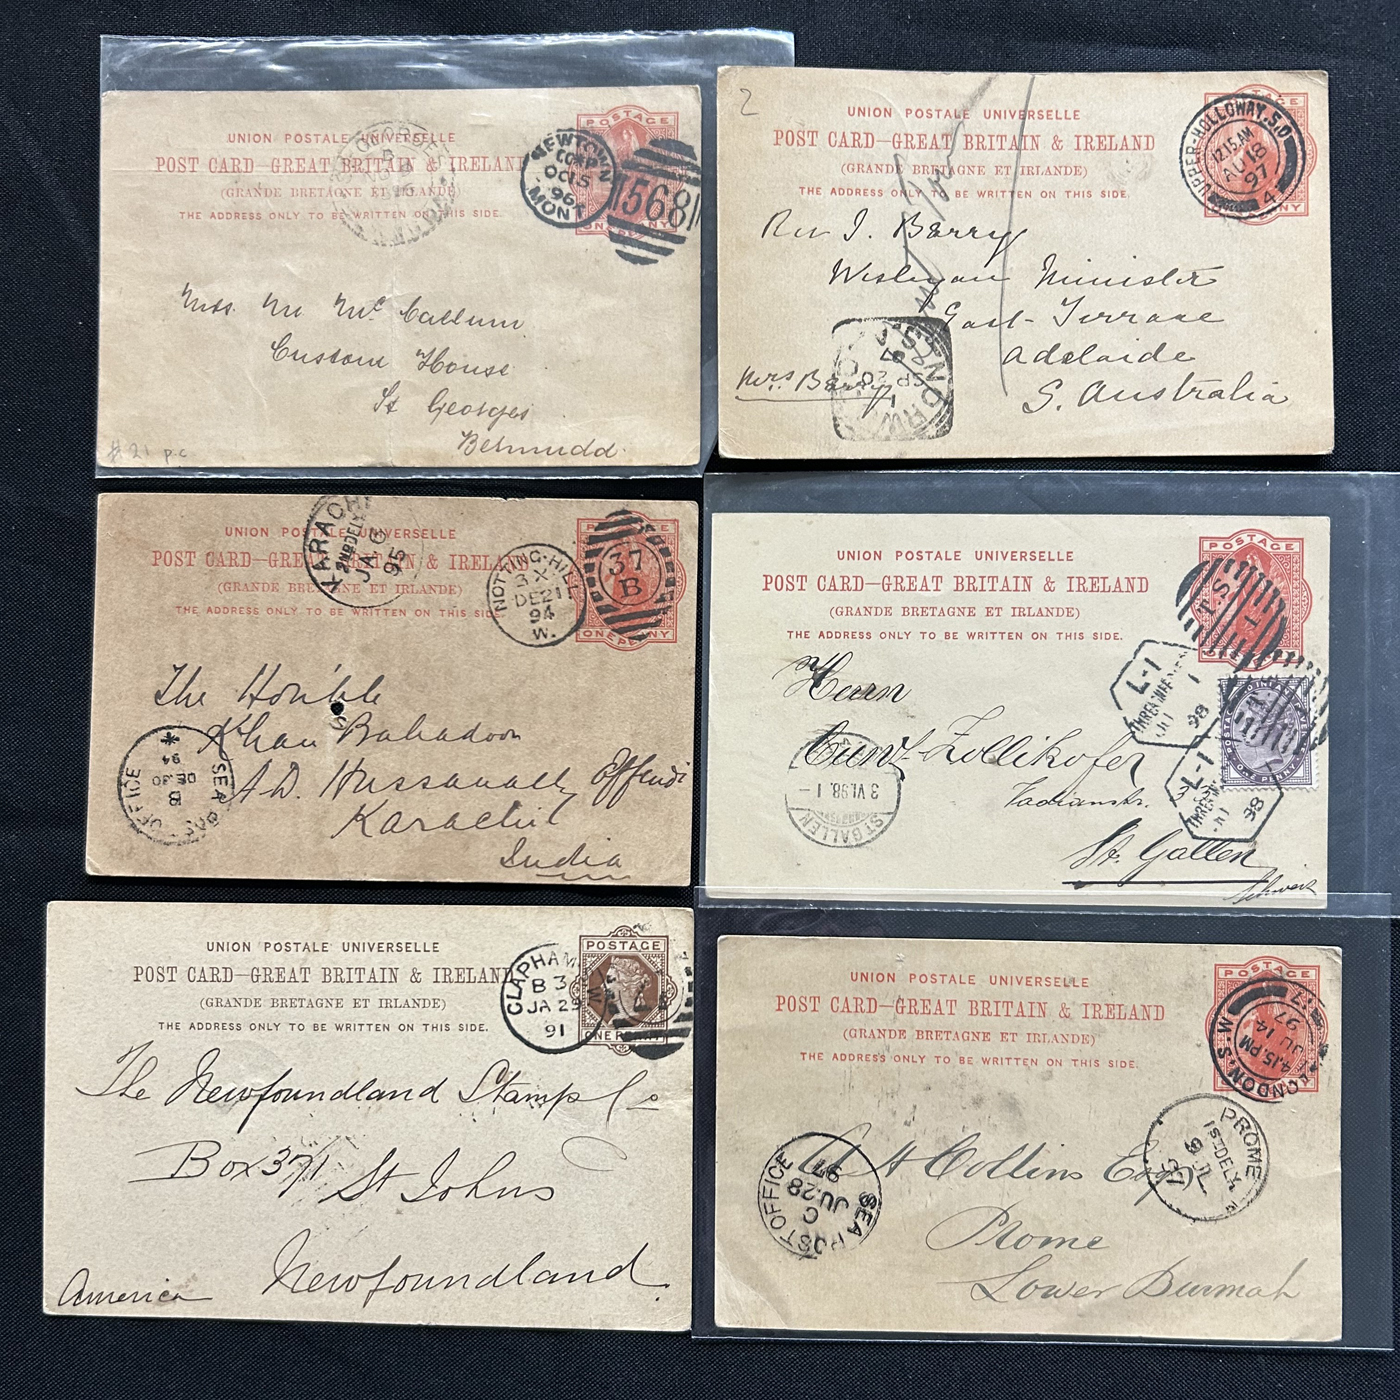 UNION POSTALE UNIVERSELLE
POST CARD—GREAT BRITAIN & IRELAND
(GRANDE BRETAGNE ET IRLANDE)
THE ADDRESS ONLY TO BE WRITTEN ON THIS SIDE.
POSTAGE
ONE PENNY
NEWTOWN
OC 15
96
MONT
568
Miss M McCallum
Custom House
St Georges
Bermuda
# 21 p.c
2
UNION POSTALE UNIVERSELLE
POST CARD—GREAT BRITAIN & IRELAND
(GRANDE BRETAGNE ET IRLANDE)
THE ADDRESS ONLY TO BE WRITTEN ON THIS SIDE.
UPPER-HOLLOWAY.S.O
12.15.AM
AU 18
97
4
Rev J. Berry
Wesleyan Minister
East-Terrace
Adelaide
S. Australia
Mrs Berry
1
SP 20
97
UNION POSTALE UNIVERSELLE
POST CARD—GREAT BRITAIN & IRELAND
(GRANDE BRETAGNE ET IRLANDE)
THE ADDRESS ONLY TO BE WRITTEN ON THIS SIDE.
KARACHI
2ND DELY
JA 6
95
NOTTING-HILL
3 X
DE 21
94
W.
37
B
ONE PENNY
The Hon'ble
Khan Bahadoor
A.D. Hussanally Effendi
Karachi
India
SEA POST OFFICE
B
DE 30
94
UNION POSTALE UNIVERSELLE
POST CARD—GREAT BRITAIN & IRELAND
(GRANDE BRETAGNE ET IRLANDE)
THE ADDRESS ONLY TO BE WRITTEN ON THIS SIDE.
POSTAGE
T.S.
L-1
98
L-1
98
ONE PENNY
Herrn
Zollikofer
Vadianstr.
St. Gallen
3 VI.98. 1-
ST GALLEN
UNION POSTALE UNIVERSELLE
POST CARD—GREAT BRITAIN & IRELAND
(GRANDE BRETAGNE ET IRLANDE)
THE ADDRESS ONLY TO BE WRITTEN ON THIS SIDE.
POSTAGE
ONE PENNY
CLAPHAM
B 3
JA 29
91
The Newfoundland Stamp Co
Box 371 St Johns
Newfoundland.
America
UNION POSTALE UNIVERSELLE
POST CARD—GREAT BRITAIN & IRELAND
(GRANDE BRETAGNE ET IRLANDE)
THE ADDRESS ONLY TO BE WRITTEN ON THIS SIDE.
POSTAGE
LONDON.S.W.
4.15.PM
JU 14
97
17
PROME
1ST DELY
97
SEA POST OFFICE
C
JU 28
97
A H Collins Esq
Prome
Lower Burmah